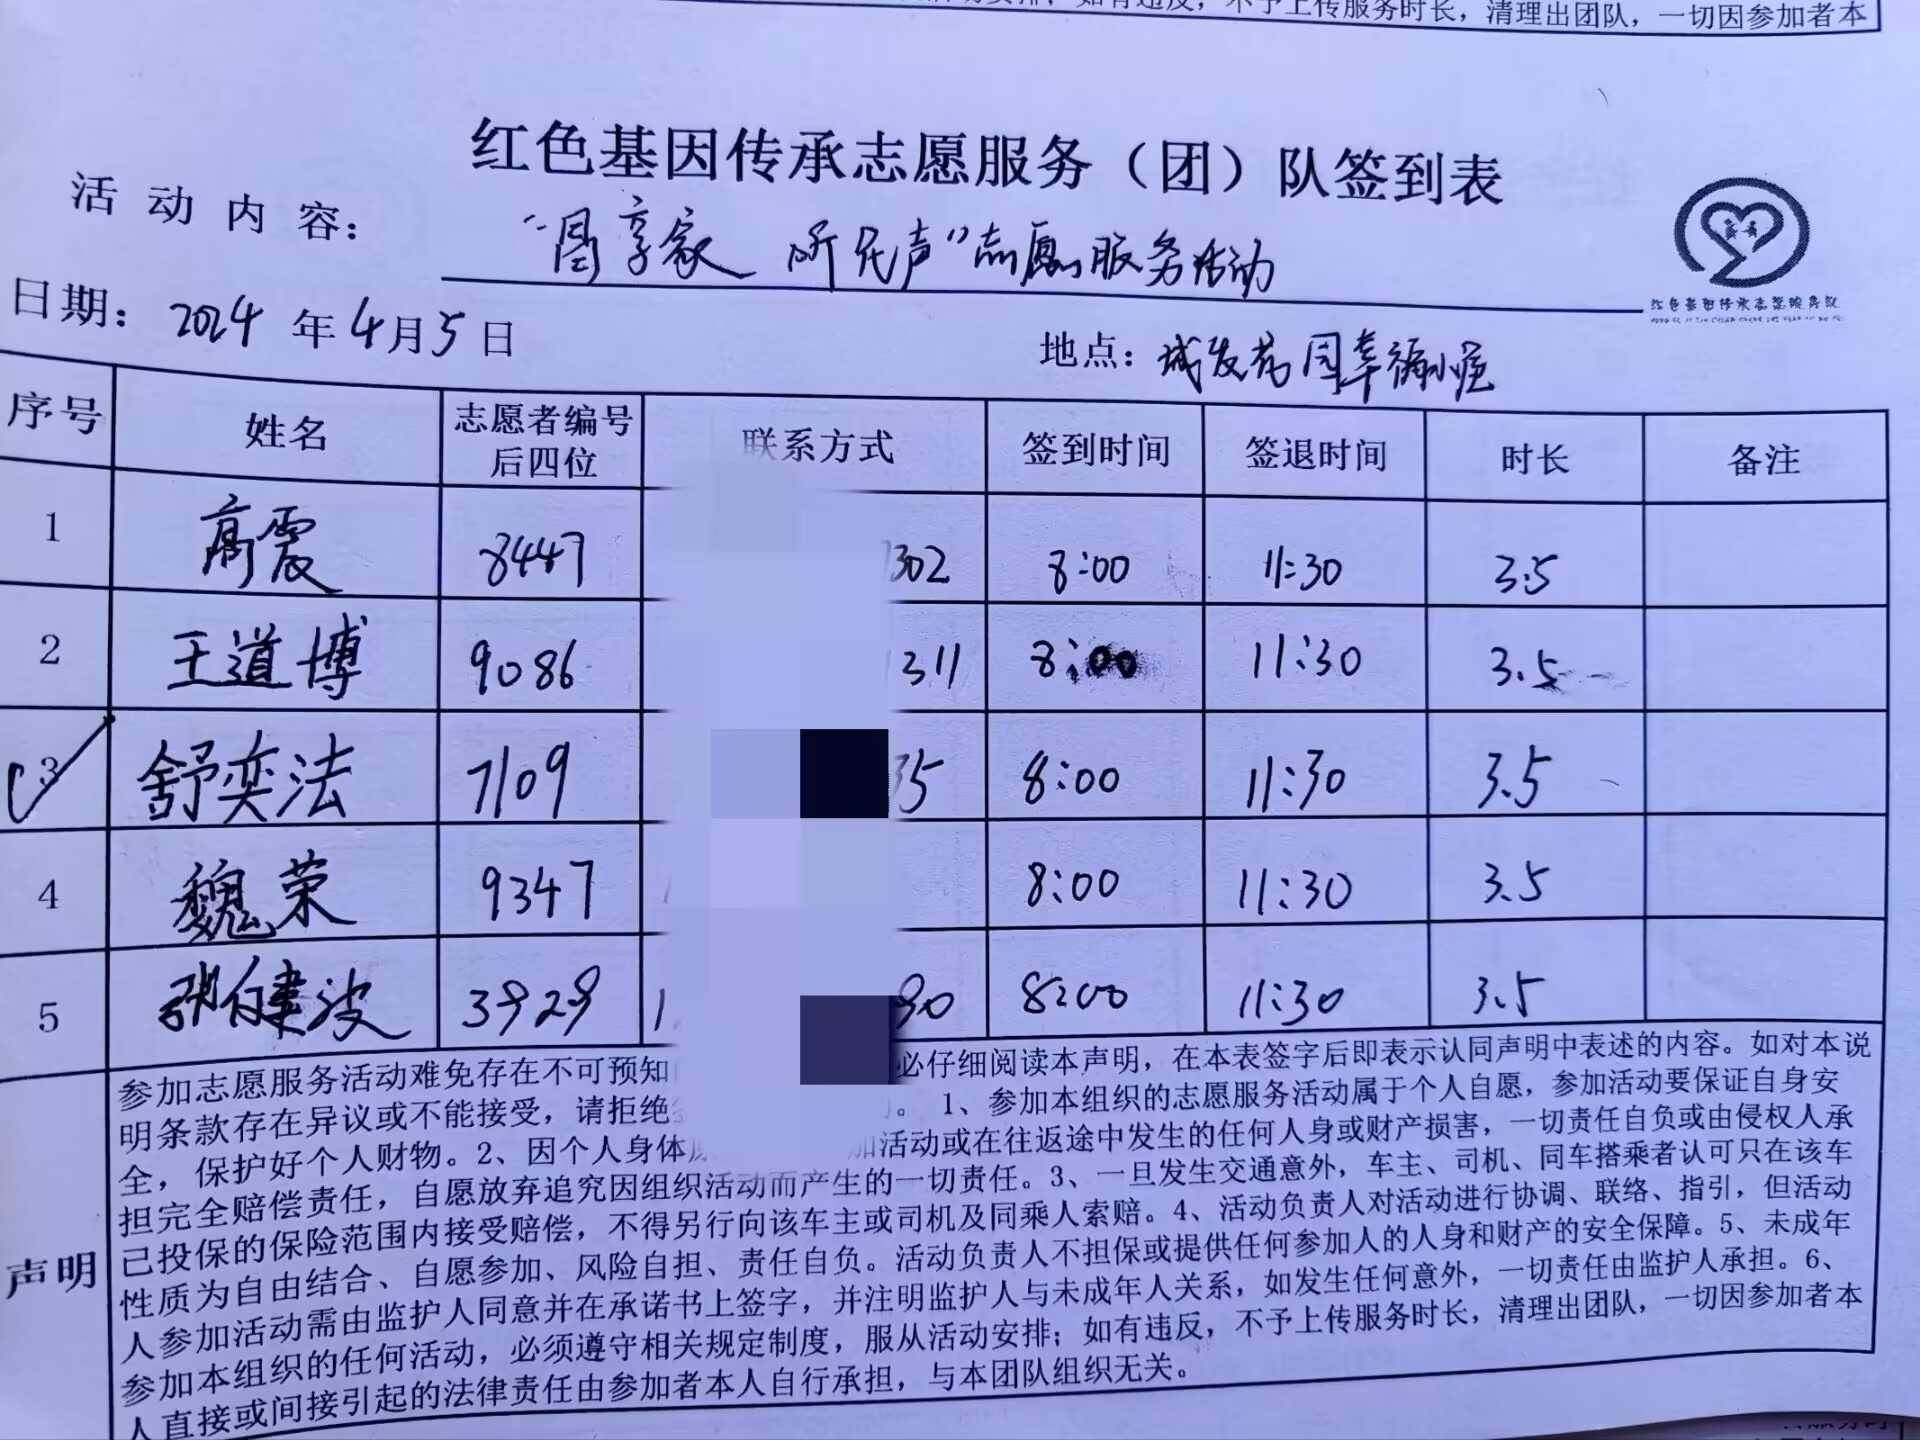 不予上传服务时长，清理出团队，一切因参加者本
红色基因传承志愿服务（团）队签到表
活动内容： 享家 听 声”志愿服务活动
红色基因传承志愿服务队
日期：2024年4月5日
地点：城发 园幸福小
序号 姓名 志愿者编号后四位 联系方式 签到时间 签退时间 时长 备注
1 高震 8447 302 8:00 11:30 3.5
2 王道博 9086 311 8:00 11:30 3.5
3 舒奕法 7109 35 8:00 11:30 3.5
4 魏荣 9347 8:00 11:30 3.5
5 张健波 3929 1 90 8:00 11:30 3.5
声明
参加志愿服务活动难免存在不可预知 必仔细阅读本声明，在本表签字后即表示认同声明中表述的内容。如对本说
明条款存在异议或不能接受，请拒绝 。1、参加本组织的志愿服务活动属于个人自愿，参加活动要保证自身安
全，保护好个人财物。2、因个人身体 加活动或在往返途中发生的任何人身或财产损害，一切责任自负或由侵权人承
担完全赔偿责任，自愿放弃追究因组织活动而产生的一切责任。3、一旦发生交通意外，车主、司机、同车搭乘者认可只在该车
已投保的保险范围内接受赔偿，不得另行向该车主或司机及同乘人索赔。4、活动负责人对活动进行协调、联络、指引，但活动
性质为自由结合、自愿参加、风险自担、责任自负。活动负责人不担保或提供任何参加人的人身和财产的安全保障。5、未成年
人参加活动需由监护人同意并在承诺书上签字，并注明监护人与未成年人关系，如发生任何意外，一切责任由监护人承担。6、
参加本组织的任何活动，必须遵守相关规定制度，服从活动安排；如有违反，不予上传服务时长，清理出团队，一切因参加者本
人直接或间接引起的法律责任由参加者本人自行承担，与本团队组织无关。